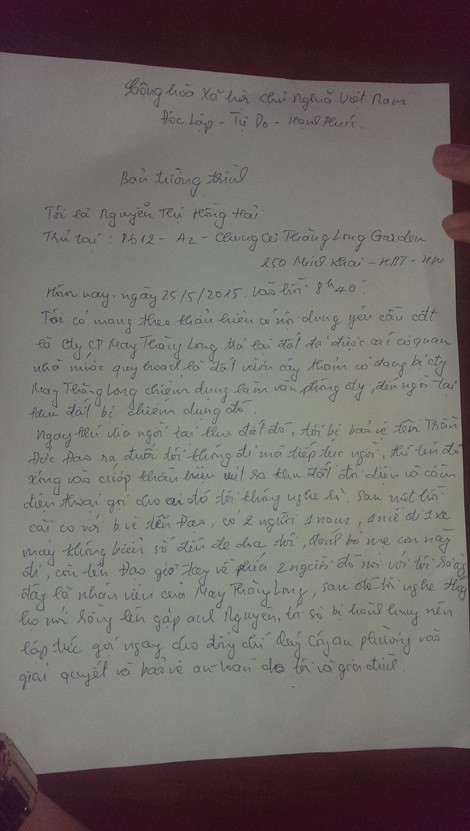 Cộng hòa Xã hội chủ Nghĩa Việt Nam
Độc Lập - Tự Do - Hạnh Phúc.
Bản tường trình
Tôi là Nguyễn Thị Hồng Hải
Trú tại : P612 - A2 - Chung cư Thăng Long Garden
250 Minh Khai - HBT - HN
Hôm nay. ngày 25/5/2015. vào hồi 8h40'
Tôi có mang theo khẩu hiệu có nội dung yêu cầu cắt
là Cty CP May Thăng Long trả lại đất đã được các cơ quan
nhà nước quy hoạch là đất vườn cây thảm cỏ đang bị cty
May Thăng Long chiếm dụng làm văn phòng cty, đến ngồi tại
khu đất bị chiếm dụng đó.
Ngay khi vừa ngồi tại khu đất đó, tôi bị bảo vệ tên Trần
Đức Đạo ra đuổi tôi không đi mà tiếp tục ngồi, thì tên đó
xông vào cướp khẩu hiệu vứt ra khu đất đối diện và cầm
điện thoại gọi cho ai đó tôi không nghe rõ. Sau một hồi
cãi cọ với b.vệ tên Đạo, có 2 người 1 nam, 1 nữ đi 1 xe
máy không biển số đến đe dọa tôi, đánh bỏ mẹ con này
đi, còn tên Đạo giơ tay về phía 2 người đó nói với tôi rằng
đây là nhân viên của May Thăng Long, sau đó tôi nghe thấy
họ nói rằng lên gặp anh Nguyên, tôi sợ bị hành hung nên
lập tức gọi ngay cho đồng chí Quý Công an phường vào
giải quyết và bảo vệ an toàn cho tôi và gia đình.